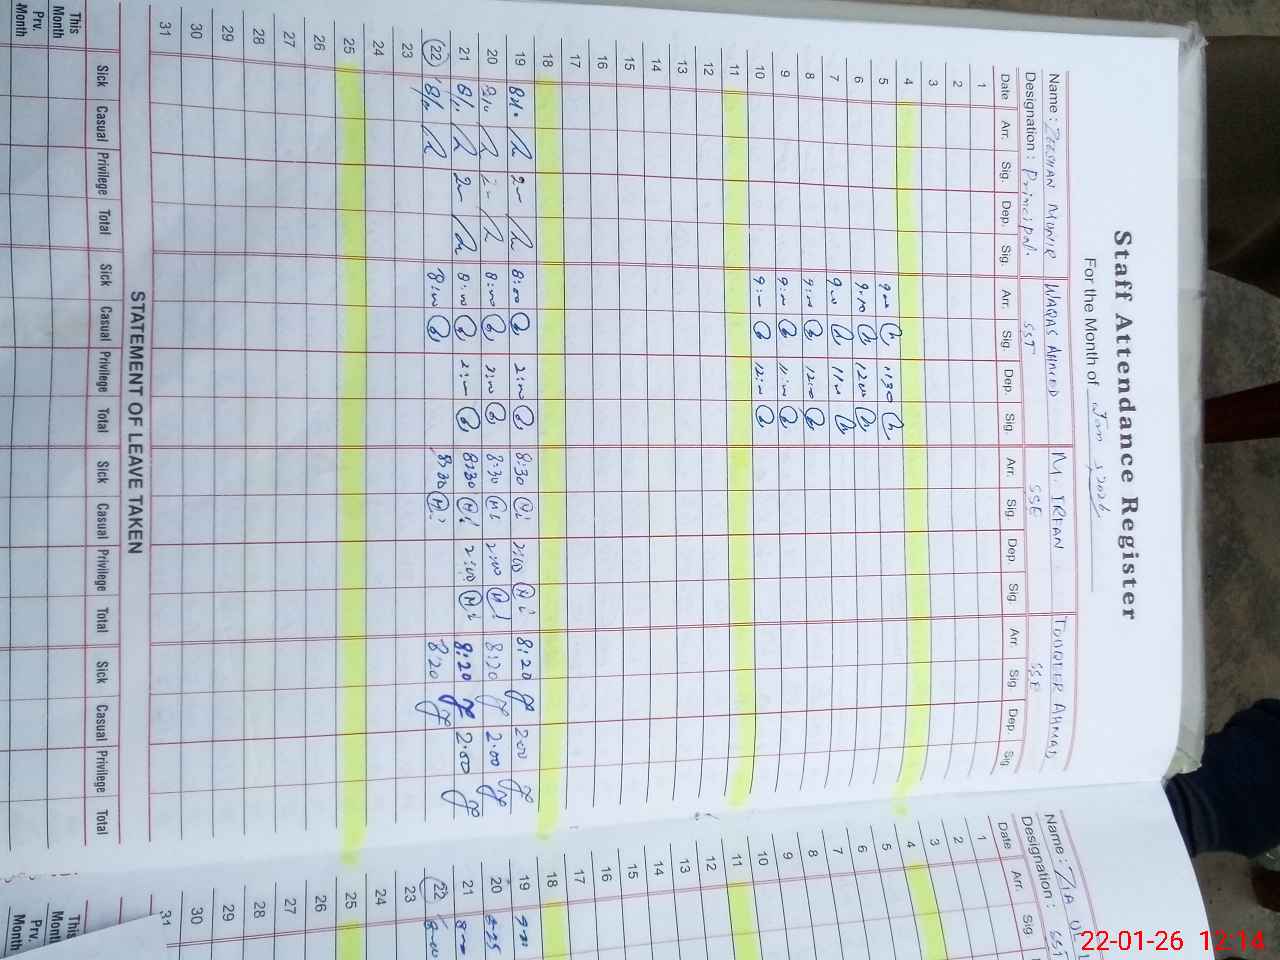 Staff Attendance Register
For the Month of Jan 2026
Name : ZEESHAN MUNIR WAQAS AHMED M. IRFAN TOUQEER AHMAD
Designation : Principal. SST SSE SSE
Date Arr. Sig. Dep. Sig. Arr. Sig. Dep. Sig. Arr. Sig. Dep. Sig. Arr. Sig. Dep. Sig.
1
2
3
4
5 9:00 11:30
6 9:00 12:00
7 9:00 11:00
8 9:00 12:00
9 9:00 11:00
10 9:00 12:00
11
12
13
14
15
16
17
18
19 8:00 2:00 8:30 2:00 8:20 2:00
20 8:00 2:00 8:30 2:00 8:20 2.00
21 8:00 2:00 8:30 2:00 8:20 2.00
22 8:00 8:30 8:20
23
24
25
26
27
28
29
30
31
STATEMENT OF LEAVE TAKEN
Sick Casual Privilege Total Sick Casual Privilege Total Sick Casual Privilege Total Sick Casual Privilege Total
This Month
Prv. Month
Name : ZIA UL
Designation : SST
Date Arr. Sig.
1
2
3
4
5
6
7
8
9
10
11
12
13
14
15
16
17
18
19
20
21
22
23
24
25
26
27
28
29
30
31
This Month
Prv. Month
22-01-26 12:14